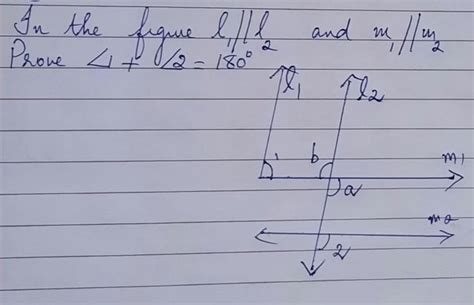 In the figure l1//l2 and m1//m2
Prove ∠1 + ∠2 = 180°
l1 l2
1 b m1
a
m2
2